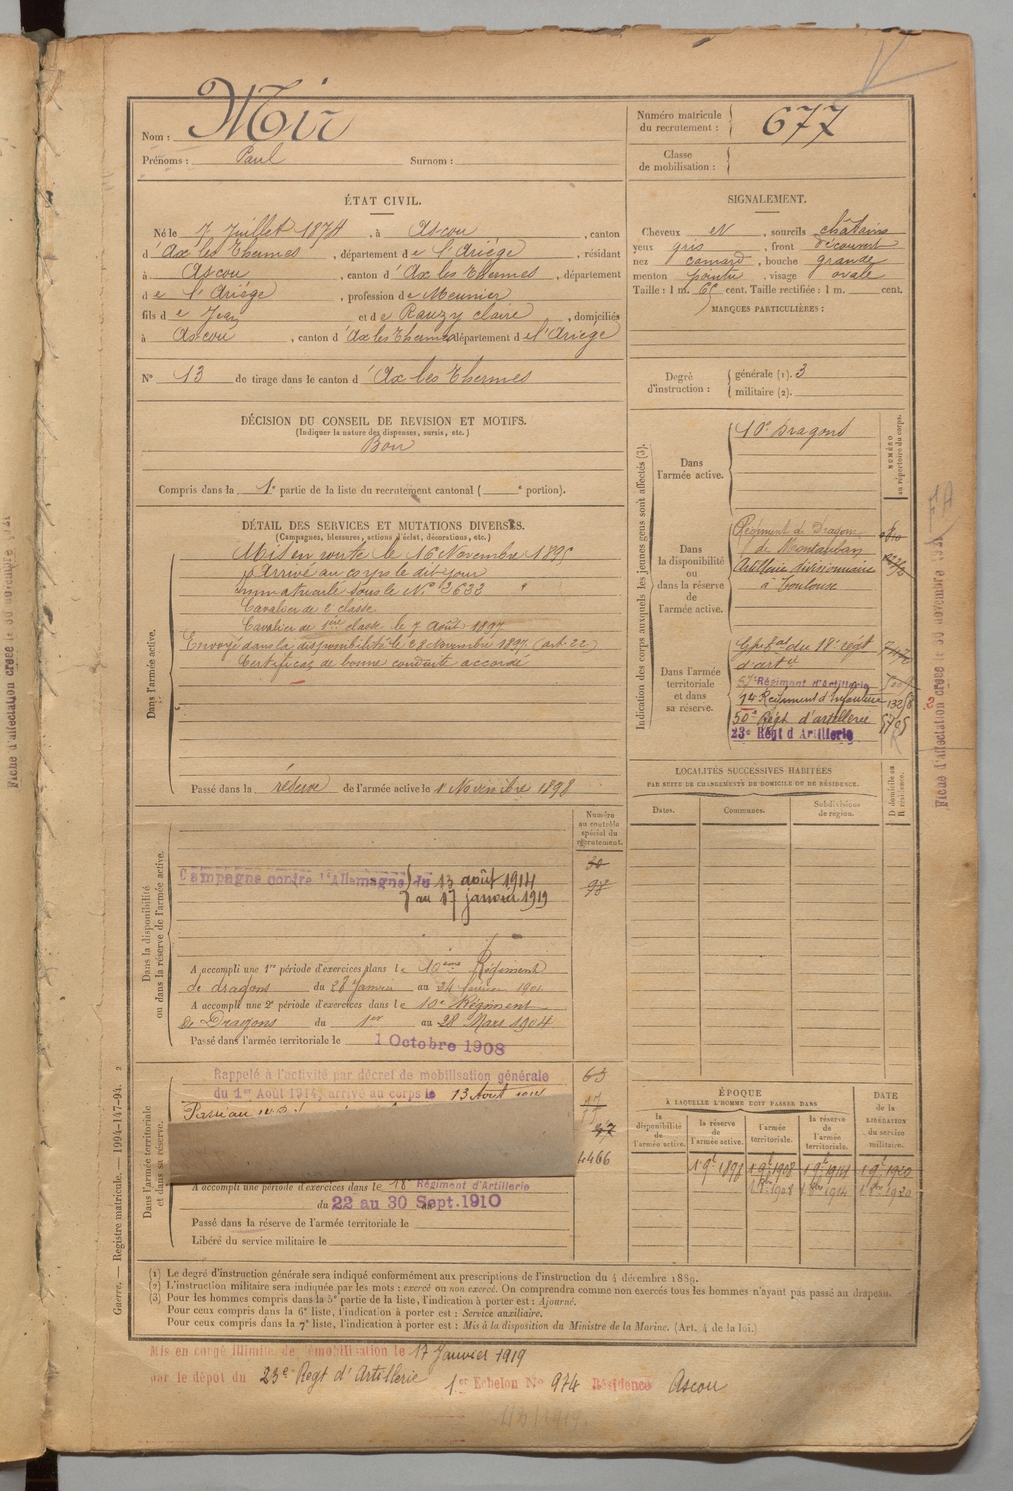 Nom : Mir
Prénoms : Paul Surnom :
Numéro matricule du recrutement : 677
Classe de mobilisation :
ÉTAT CIVIL.
Né le 7 Juillet 1874, à Ascou, canton
d'Ax les Thermes, département de l'Ariège, résidant
à Ascou, canton d'Ax les Thermes, département
de l'Ariège, profession de Meunier
fils de Jean et de Rauzy claire, domiciliés
à Ascou, canton d'Ax les Thermes département de l'Ariège
N° 13 de tirage dans le canton d'Ax les Thermes
SIGNALEMENT.
Cheveux et, sourcils châtains
yeux gris, front découvert
nez camard, bouche grande
menton pointu, visage ovale
Taille : 1 m. cent. Taille rectifiée : 1 m. cent.
MARQUES PARTICULIÈRES :
Degré d'instruction : générale (1). 3
militaire (2).
DÉCISION DU CONSEIL DE REVISION ET MOTIFS.
(Indiquer la nature des dispenses, sursis, etc.)
Bon
Compris dans la 1e partie de la liste du recrutement cantonal ( e portion).
DÉTAIL DES SERVICES ET MUTATIONS DIVERSES.
(Campagnes, blessures, actions d'éclat, décorations, etc.)
Dans l'armée active.
Mis en route le 16 Novembre 1895
Arrivé au corps le dit jour
immatriculé sous le N° 3633
Cavalier de 2e classe
Cavalier de 1ère classe le 7 Août 1897
Envoyé dans la disponibilité le 28 Novembre 1897. (art. 22)
Certificat de bonne conduite accordé
Passé dans la réserve de l'armée active le 1 Novembre 1898
Indication des corps auxquels les jeunes gens sont affectés (3).
NUMÉRO au répertoire du corps.
Dans l'armée active.
10e Dragons
Dans la disponibilité ou dans la réserve de l'armée active.
Régiment de Dragons
de Montauban
Artillerie divisionnaire
à Toulouse
Dans l'armée territoriale et dans sa réserve.
Gpe tal du 18e régt
d'artie
57e Régiment d'Artillerie
14 Régiment d'Infanterie 132
50e Régt d'artillerie
23e Régt d Artillerie
LOCALITÉS SUCCESSIVES HABITÉES
PAR SUITE DE CHANGEMENTS DE DOMICILE OU DE RÉSIDENCE.
Dates. Communes. Subdivisions de région. D domicile ou R résidence.
Dans la disponibilité ou dans la réserve de l'armée active.
Numéro au contrôle spécial du recrutement.
30
98
Campagne contre l'Allemagne du 13 août 1914
au 17 janvier 1919
A accompli une 1re période d'exercices dans le 10ème Régiment
de dragons du 28 Janvier au 24 février 1901
A accompli une 2e période d'exercices dans le 10e Régiment
de Dragons du 1er au 28 Mars 1904
Passé dans l'armée territoriale le 1 Octobre 1908
Dans l'armée territoriale et dans sa réserve.
Rappelé à l'activité par décret de mobilisation générale
du 1er Août 1914, arrivé au corps le 13 Août 1914
63
4466
A accompli une période d'exercices dans le 18 Régiment d'Artillerie
du 22 au 30 Sept. 1910
Passé dans la réserve de l'armée territoriale le
Libéré du service militaire le
ÉPOQUE
À LAQUELLE L'HOMME DOIT PASSER DANS
la disponibilité de l'armée active.
la réserve de l'armée active.
l'armée territoriale.
la réserve de l'armée territoriale.
DATE de la LIBÉRATION du service militaire.
1 9e 1898 1 9e 1908 1 9e 1914 1 9e 1920
(1) Le degré d'instruction générale sera indiqué conformément aux prescriptions de l'instruction du 4 décembre 1889.
(2) L'instruction militaire sera indiquée par les mots : exercé ou non exercé. On comprendra comme non exercés tous les hommes n'ayant pas passé au drapeau.
(3) Pour les hommes compris dans la 5e partie de la liste, l'indication à porter est : Ajourné.
Pour ceux compris dans la 6e liste, l'indication à porter est : Service auxiliaire.
Pour ceux compris dans la 7e liste, l'indication à porter est : Mis à la disposition du Ministre de la Marine. (Art. 4 de la loi.)
Mis en congé illimité de démobilisation le 17 Janvier 1919
par le dépôt du 23e Régt d'Artillerie 1er Echelon N° 974 Résidence Ascou
Guerre. — Registre matricule. — 1994-147-94. 2
Fiche d'affectation créée le 30 novembre